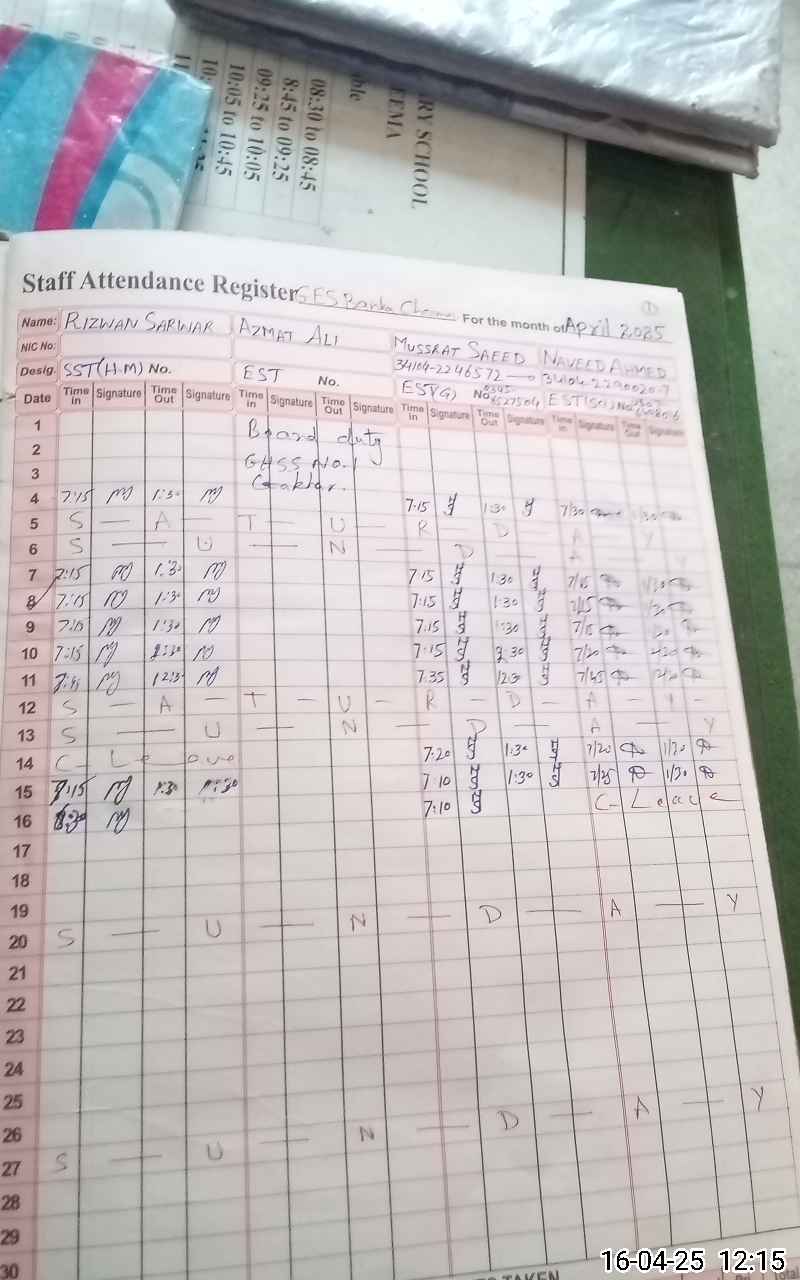 RY SCHOOL
EEMA
ble
08:30 to 08:45
8:45 to 09:25
09:25 to 10:05
10:05 to 10:45
10:
Staff Attendance Register GES Banka For the month of April 2025
Name: RIZWAN SARWAR AZMAT ALI MUSSRAT SAEED NAVEED AHMED
NIC No: 34104-2246572
Desig. SST(H.M) No. EST No. EST(G) No. EST(Sci) No.
Date Time in Signature Time Out Signature Time in Signature Time Out Signature Time in Signature Time Out Signature Time in Signature Time Out Signature
1 Board duty
2 GHSS No.1
3 Gakhar.
4 7:15 1:30 7.15 1:30 7/30 1/30
5 S — A — T — U — R — D — A — Y
6 S — U — N — D — A — Y
7 7:15 1:30 7 15 1:30 7/15 1/30
8 7:15 1:30 7:15 1:30 7/15 1/30
9 7:15 1:30 7.15 1:30 7/15
10 7:15 7:15 7/20
11 12:30 7:35 12:30 7/45
12 S — A — T — U — R — D — A — Y —
13 S — U — N — D — A — Y
14 C — Leave 7:20 1:30 7/20 1/30
15 7:15 1:30 1:30 7:10 1:30 7/25 1/30
16 8:30 7:10 C- Leave
17
18
19
20 S — U — N — D — A — Y
21
22
23
24
25
26
27 S — U — N — D — A — Y
28
29
30
TAKEN Total
16-04-25 12:15